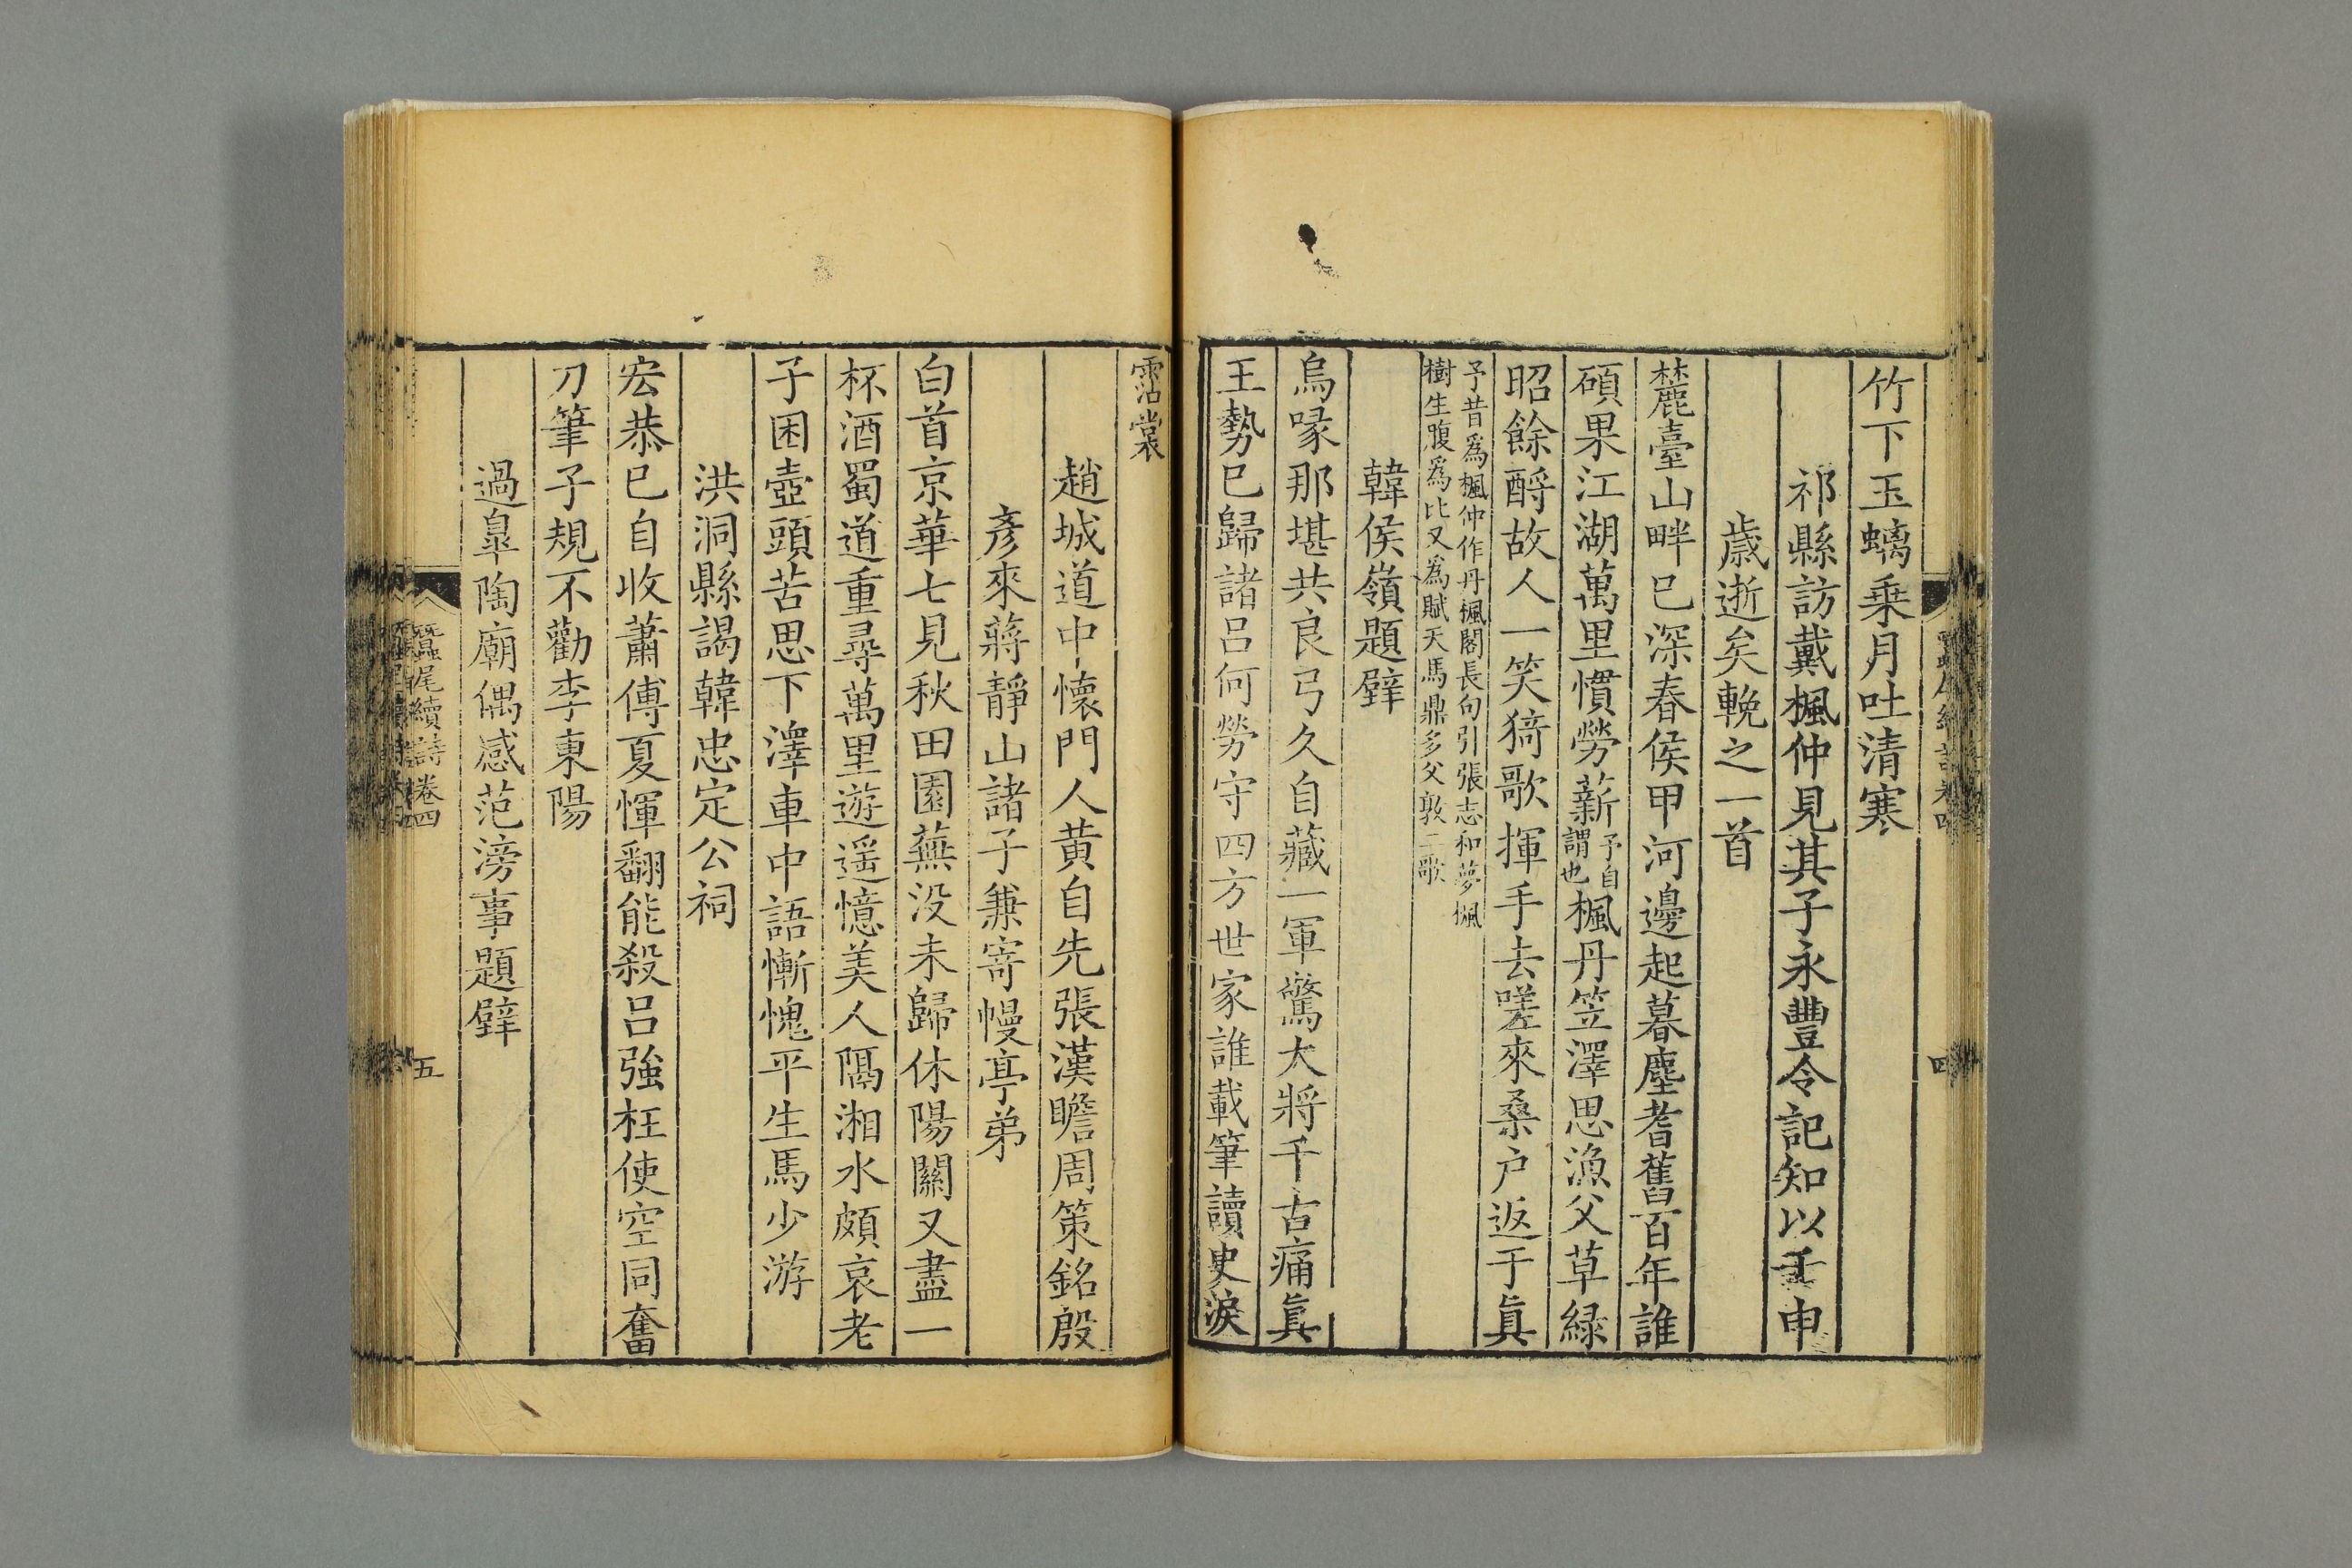 竹下玉螭乗月吐清寒
祁縣訪戴楓仲見其子永豐令記知以壬申
歲逝矣輓之一首
麓臺山畔巳深春侯甲河邊起暮塵耆舊百年誰
碩果江湖萬里慣勞薪予自謂也楓丹笠澤思漁父草緑
昭餘酹故人一笑猗歌揮手去嗟來桑户返于眞
予昔爲楓仲作丹楓閣長句引張志和夢楓
樹生腹爲比又爲賦天馬鼎多父敦二歌
韓侯嶺題壁
烏喙那堪共良弓久自藏一軍驚大將千古痛眞
王勢巳歸諸吕何勞守四方世家誰載筆讀史淚
霑裳
趙城道中懷門人黄自先張漢瞻周策銘殷
彥來蔣靜山諸子兼寄幔亭弟
白首京華七見秋田園蕪没未歸休陽關又盡一
杯酒蜀道重尋萬里遊遥憶美人隔湘水頗哀老
子困壺頭苦思下澤車中語慚愧平生馬少游
洪洞縣謁韓忠定公祠
宏恭巳自收蕭傅夏惲翻能殺吕強枉使空同奮
刀筆子規不勸李東陽
過皐陶廟偶感范滂事題壁
蠶尾續詩卷四
五